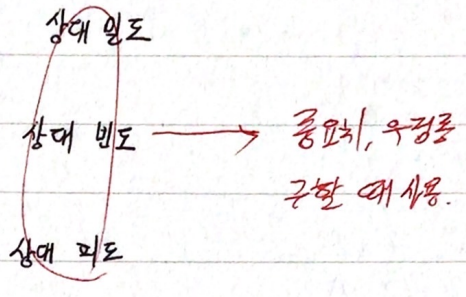 상대 밀도
상대 빈도 → 중요치, 우점종
구할 때 사용.
상대 피도